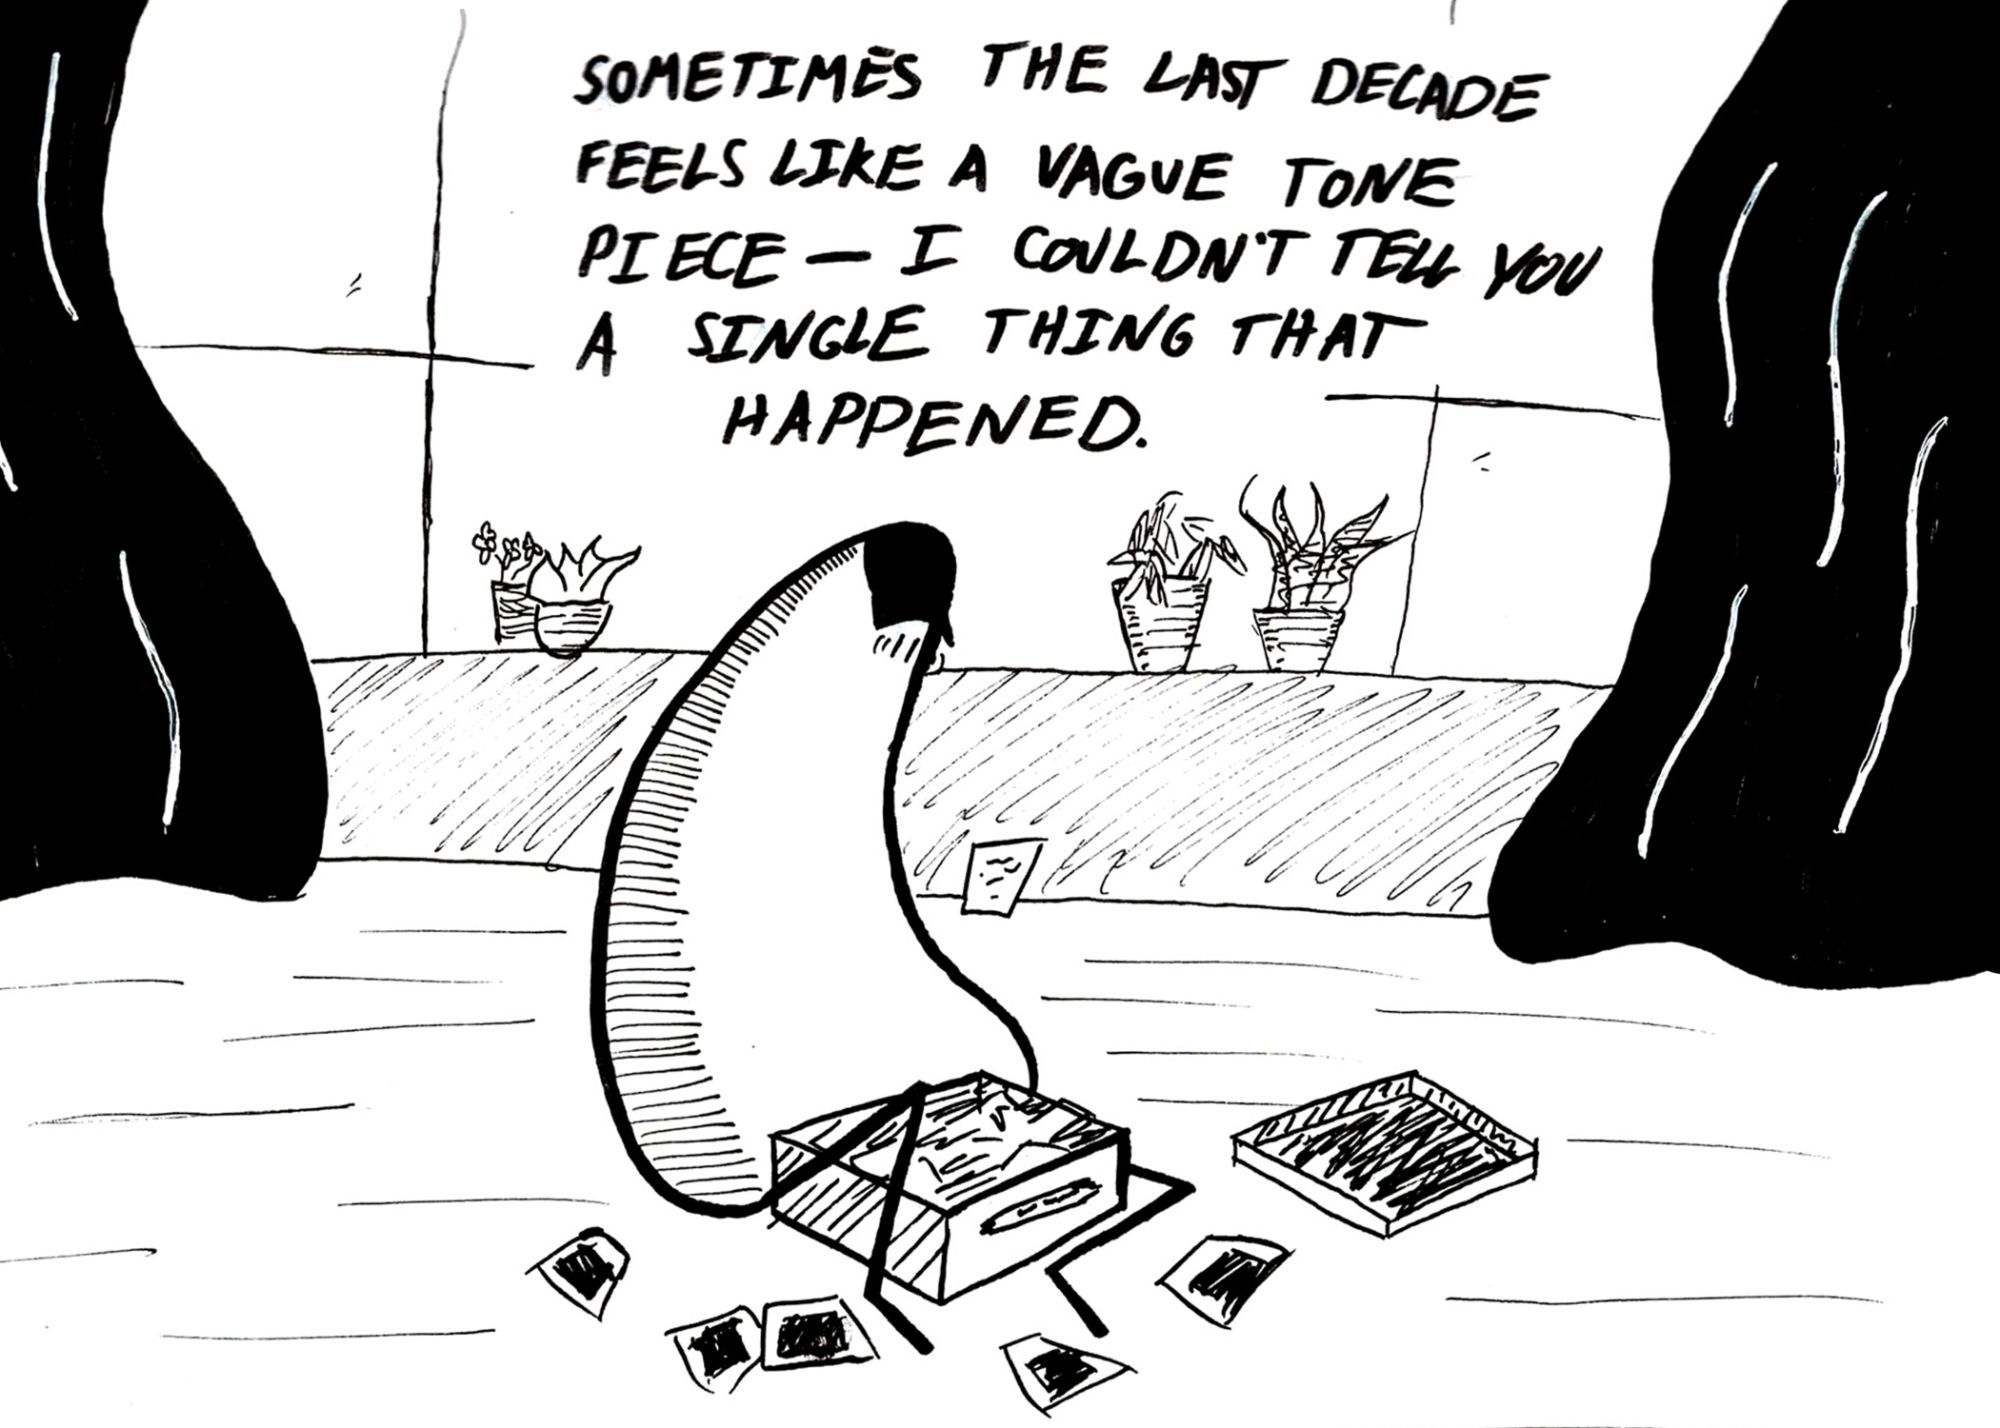 SOMETIMES THE LAST DECADE
FEELS LIKE A VAGUE TONE
PIECE — I COULDN'T TELL YOU
A SINGLE THING THAT
HAPPENED.